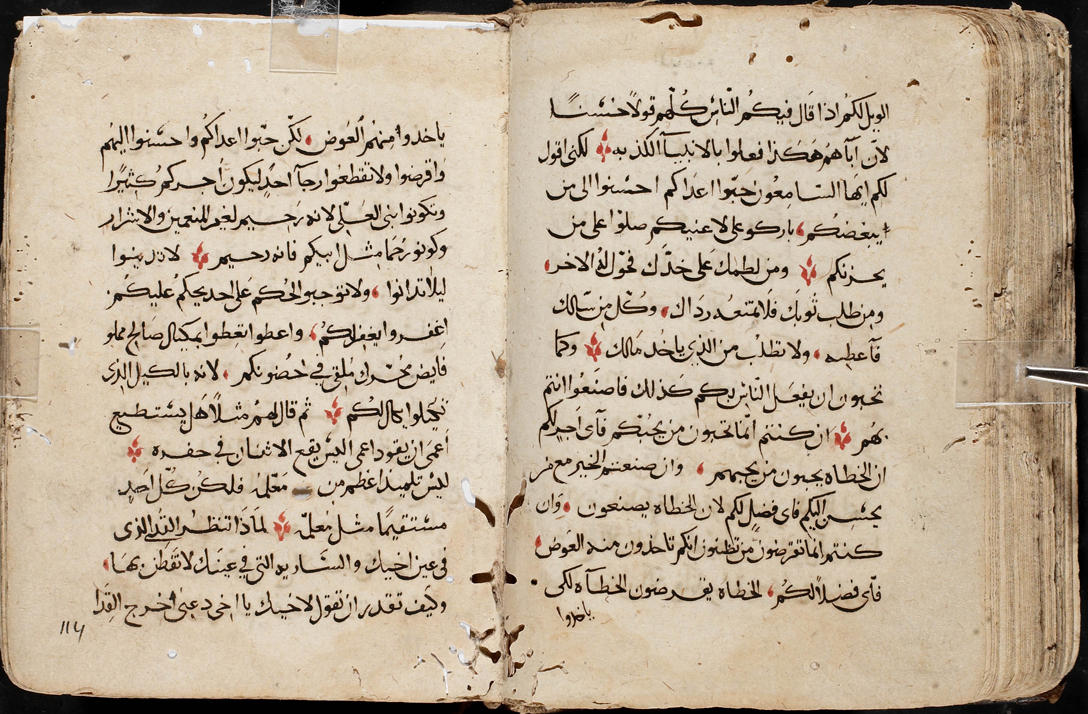 الويل لكم اذا قال فيكم الناس كلهم قولاً حسناً
لان آباهم هكذا فعلوا بالانبيآ الكذبه لكني اقول
لكم ايها السامعون حبوا اعداكم احسنوا الى من
يبغضكم باركو على لاعنيكم صلوا على من
يحزنكم ومن لطمك على خدك فحول له الاخر
ومن طلب ثوبك فلا تمنعه رداك وكل من سالك
فاعطيه ولا تطلب من الذي ياخد مالك وكما
تحبون ان يفعل الناس بكم كذلك فاصنعوا انتم
بهم ان كنتم انما تحبون من يحبكم فاي اجر لكم
ان الخطاه يحبون من يحبهم وان صنعتم الخير مع من
يحسن اليكم فاي فضل لكم لان الخطاه يصنعون وان
كنتم انما تقرضون من تظنون انكم تاخذون منه العوض
فاي فضلاً لكم الخطاه يقرضون الخطآه لكي
ياخدوا
ياخدوا منهم العوض لكن حبوا اعداكم واحسنوا اليهم
واقرضوا ولا تقطعوا رجآ احدٍ ليكون اجركم كثيرًا
وتكونوا بني العلي لانه رحيم لغير المنعمين والاشرار
وكونو رحما مثل ابيكم فانه رحيم لا تدينوا
ليلا تدانوا ولا توجبو الحكم على احد يحكم عليكم
اغفروا يغفر لكم واعطوا تعطوا بمكيال صالح مملو
فايض يحرك ملقى في احضونكم لانه بالكيل الذي
تكيلوا يكال لكم ثم قال لهم مثلاً هل يستطيع
اعمى ان يقود اعمى اليس يقع الاثنان في حفره
ليس تلميذ اعظم من معلمه فليكن كل احدٍ
مستقيمًا مثل معلمه لماذا تنظر القدا الذي
في عين اخيك والساريه التي في عينك لا تفطن بها
وكيف تقدر ان تقول لاخيك يا اخي دعني اخرج القدا
114